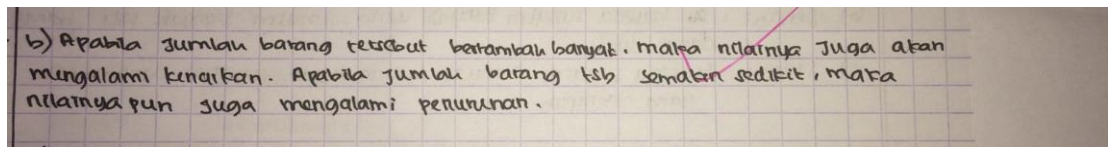 b) Apabila Jumlah barang tersebut bertambah banyak, maka nilainya Juga akan
mengalami kenaikan. Apabila Jumlah barang tsb semakin sedikit, maka
nilainya pun Juga mengalami penurunan.